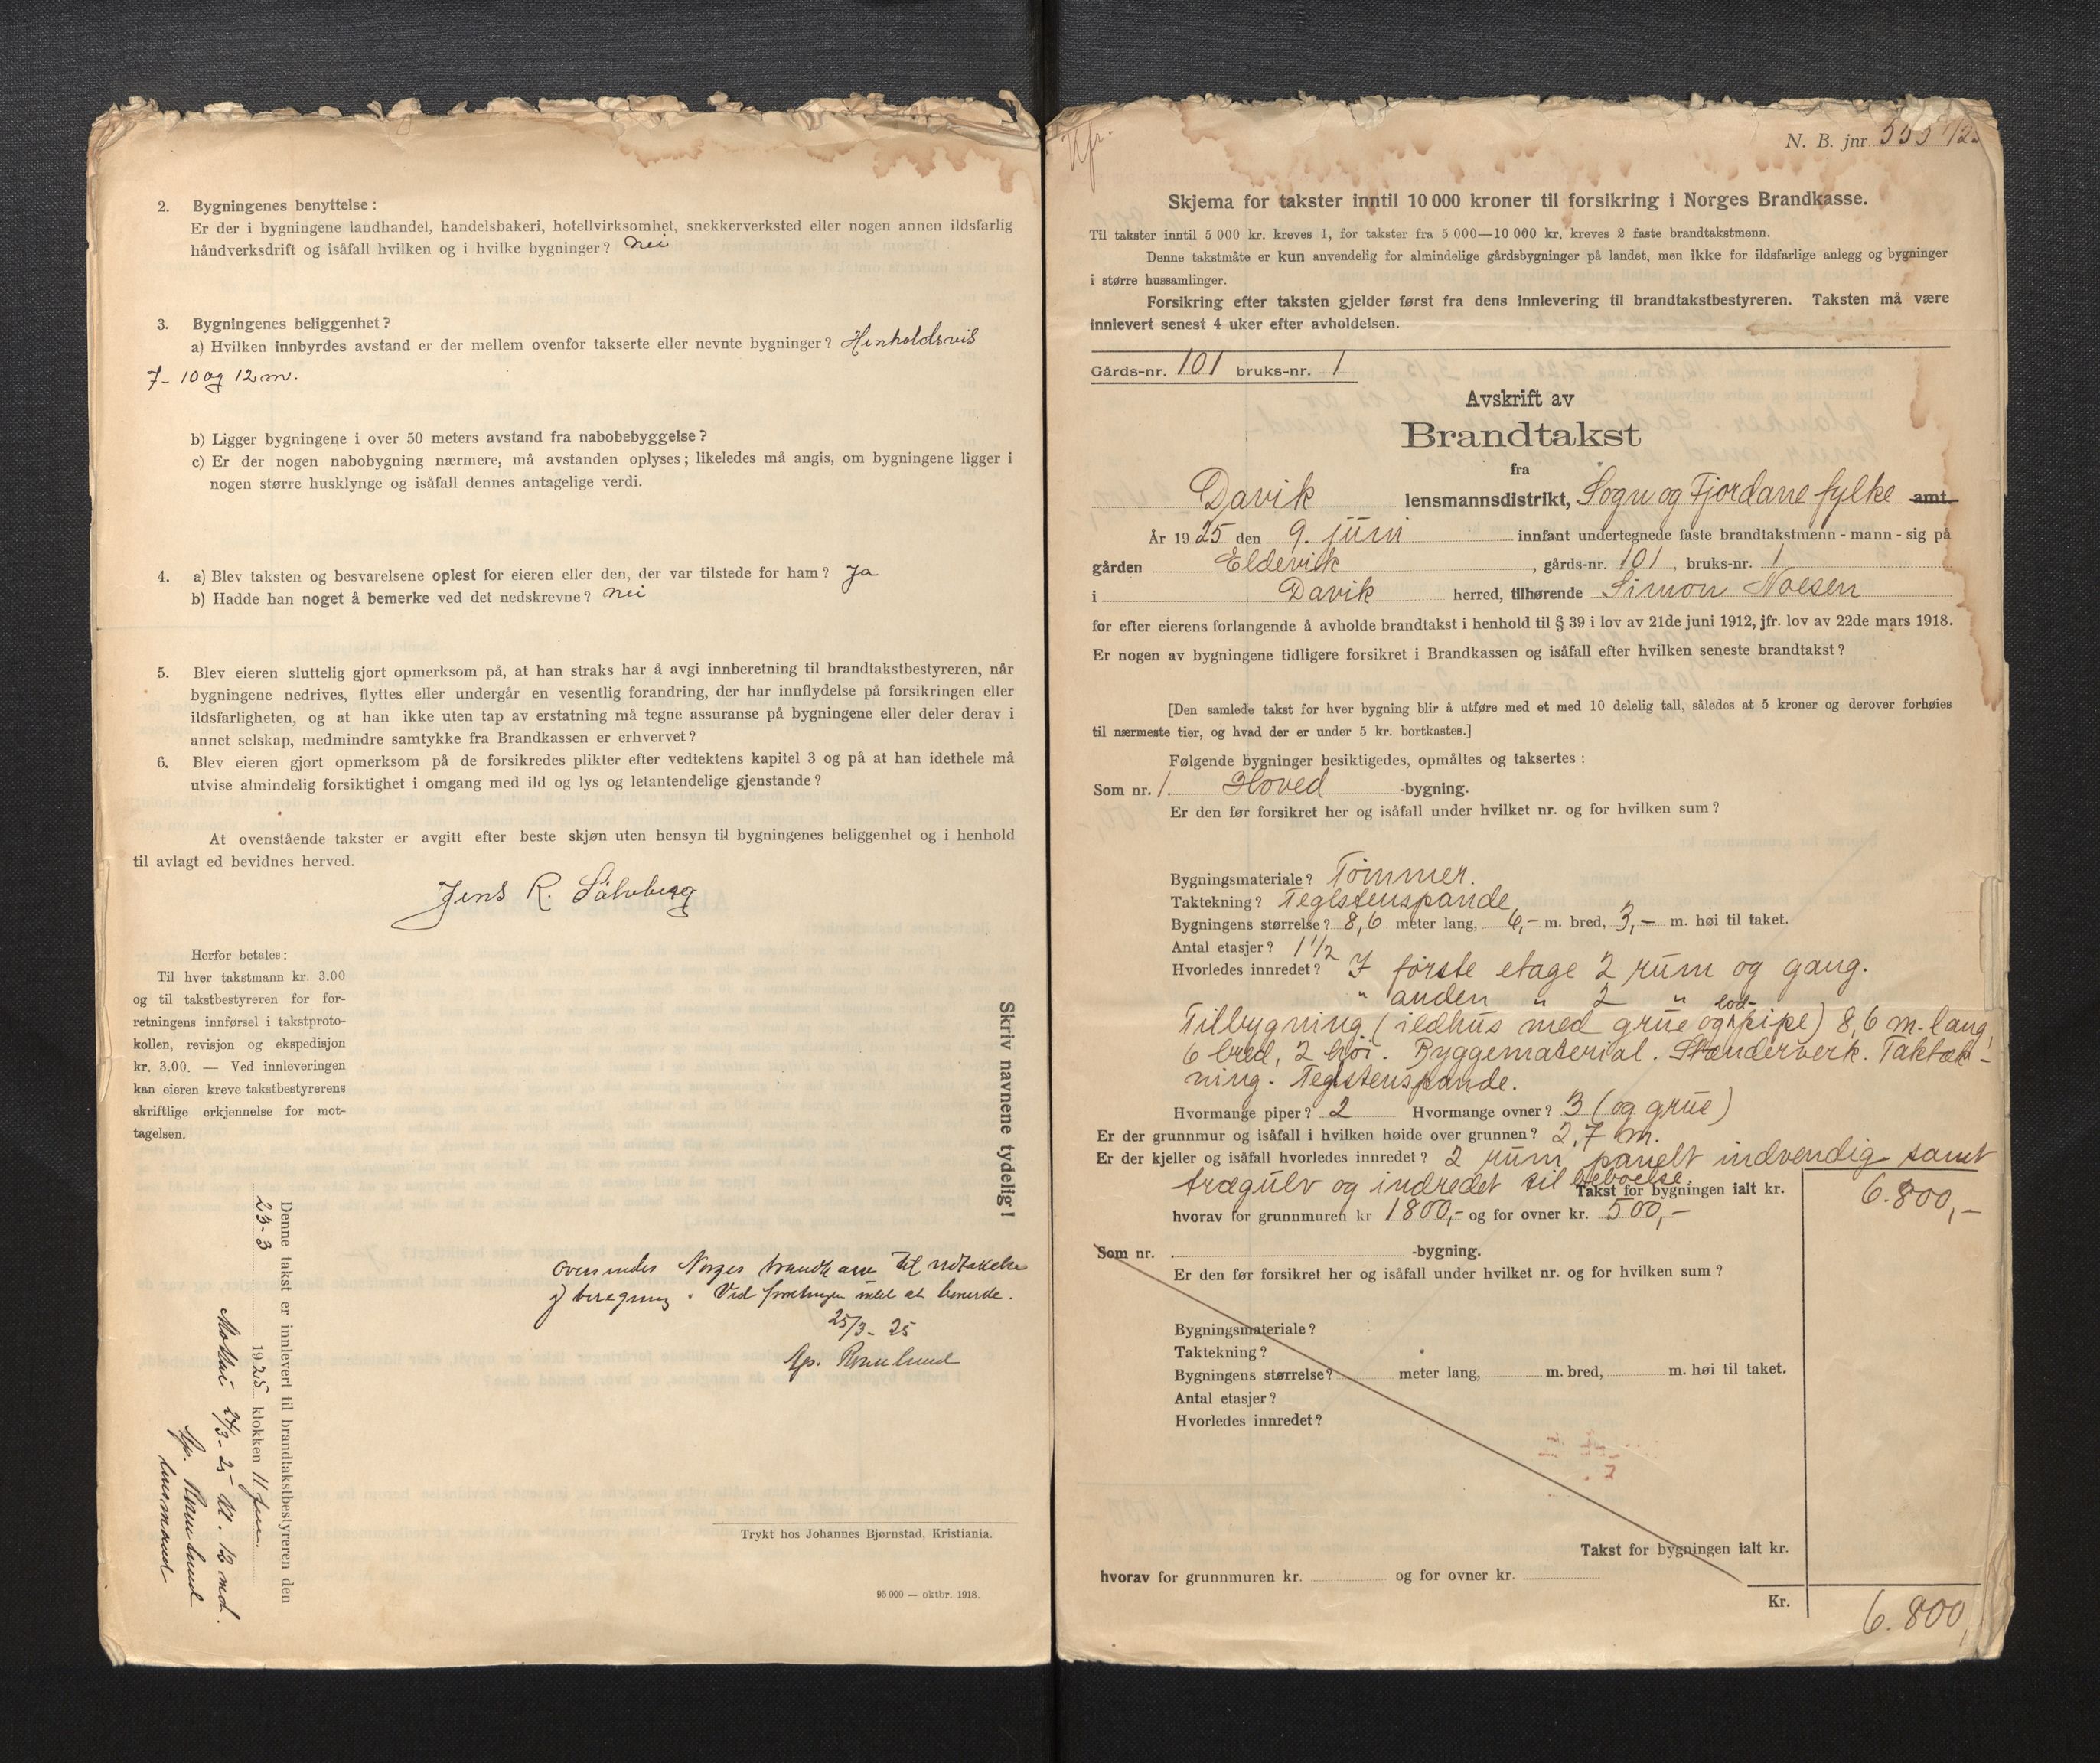 2. Bygningenes benyttelse :
Er der i bygningene landhandel, handelsbakeri, hotellvirksomhet, snekkerverksted eller nogen annen ildsfarlig
håndverksdrift og isåfall hvilken og i hvilke bygninger? nei
3. Bygningenes beliggenhet?
a) Hvilken innbyrdes avstand er der mellem ovenfor takserte eller nevnte bygninger? Henholdsvis
7 - 10 og 12 m.
b) Ligger bygningene i over 50 meters avstand fra nabobebyggelse?
c) Er der nogen nabobygning nærmere, må avstanden oplyses; likeledes må angis, om bygningene ligger i
nogen større husklynge og isåfall dennes antagelige verdi.
4. a) Blev taksten og besvarelsene oplest for eieren eller den, der var tilstede for ham? Ja
b) Hadde han noget å bemerke ved det nedskrevne? nei
5. Blev eieren sluttelig gjort opmerksom på, at han straks har å avgi innberetning til brandtakstbestyreren, når
bygningene nedrives, flyttes eller undergår en vesentlig forandring, der har innflydelse på forsikringen eller
ildsfarligheten, og at han ikke uten tap av erstatning må tegne assuranse på bygningene eller deler derav i
annet selskap, medmindre samtykke fra Brandkassen er erhvervet?
6. Blev eieren gjort opmerksom på de forsikredes plikter efter vedtektens kapitel 3 og på at han idethele må
utvise almindelig forsiktighet i omgang med ild og lys og letantendelige gjenstande?
At ovenstående takster er avgitt efter beste skjøn uten hensyn til bygningenes beliggenhet og i henhold
til avlagt ed bevidnes herved.
Jens R. Sölvberg
Herfor betales:
Til hver takstmann kr. 3.00
og til takstbestyreren for for-
retningens innførsel i takstproto-
kollen, revisjon og ekspedisjon
kr. 3.00. — Ved innleveringen
kan eieren kreve takstbestyrerens
skriftlige erkjennelse for mot-
tagelsen.
Skriv navnene tydelig!
Denne takst er innlevert til brandtakstbestyreren den
23-3 1925 klokken 11
24/3-25 kl. 12 md.
lensmand
Norges til
beregning. Ved
25/3-25
Trykt hos Johannes Bjørnstad, Kristiania.
95 000 — oktbr. 1918.
N. B. jnr.
Skjema for takster inntil 10 000 kroner til forsikring i Norges Brandkasse.
Til takster inntil 5 000 kr. kreves 1, for takster fra 5 000—10 000 kr. kreves 2 faste brandtakstmenn.
Denne takstmåte er kun anvendelig for almindelige gårdsbygninger på landet, men ikke for ildsfarlige anlegg og bygninger
i større hussamlinger.
Forsikring efter taksten gjelder først fra dens innlevering til brandtakstbestyreren. Taksten må være
innlevert senest 4 uker efter avholdelsen.
Gårds-nr. 101 bruks-nr. 1
Avskrift av
Brandtakst
fra
Davik lensmannsdistrikt, Sogn og Fjordane fylke amt.
År 1925 den 9. juni innfant undertegnede faste brandtakstmenn - mann - sig på
gården Eldevik, gårds-nr. 101, bruks-nr. 1
i Davik herred, tilhørende Simon Noesen
for efter eierens forlangende å avholde brandtakst i henhold til § 39 i lov av 21de juni 1912, jfr. lov av 22de mars 1918.
Er nogen av bygningene tidligere forsikret i Brandkassen og isåfall efter hvilken seneste brandtakst?
[Den samlede takst for hver bygning blir å utføre med et med 10 delelig tall, således at 5 kroner og derover forhøies
til nærmeste tier, og hvad der er under 5 kr. bortkastes.]
Følgende bygninger besiktigedes, opmåltes og taksertes :
Som nr. 1. Hoved -bygning.
Er den før forsikret her og isåfall under hvilket nr. og for hvilken sum?
Bygningsmateriale? Tömmer.
Taktekning? Teglstenspande
Bygningens størrelse? 8,6 meter lang, 6,- m. bred, 3,- m. høi til taket.
Antal etasjer? 1 1/2
Hvorledes innredet? I förste etage 2 rum og gang.
" anden " 2 "
Tilbygning (ildhus med grue og lodpipe) 8,6 m. lang
6 bred, 2 höi. Byggematerial. Stænderverk. Taktæk-
ning. Teglstenspande.
Hvormange piper? 2 Hvormange ovner? 3 (og grue)
Er der grunnmur og isåfall i hvilken høide over grunnen? 2,7 m.
Er der kjeller og isåfall hvorledes innredet? 2 rum panelt indvendig samt
trægulv og indredet til beboelse.
Takst for bygningen ialt kr. 6.800,-
hvorav for grunnmuren kr 1800,- og for ovner kr. 500,-
Som nr. -bygning.
Er den før forsikret her og isåfall under hvilket nr. og for hvilken sum?
Bygningsmateriale?
Taktekning?
Bygningens størrelse? meter lang, m. bred, m. høi til taket.
Antal etasjer?
Hvorledes innredet?
Takst for bygningen ialt kr.
hvorav for grunnmuren kr. og for ovner kr.
Kr. 6.800,